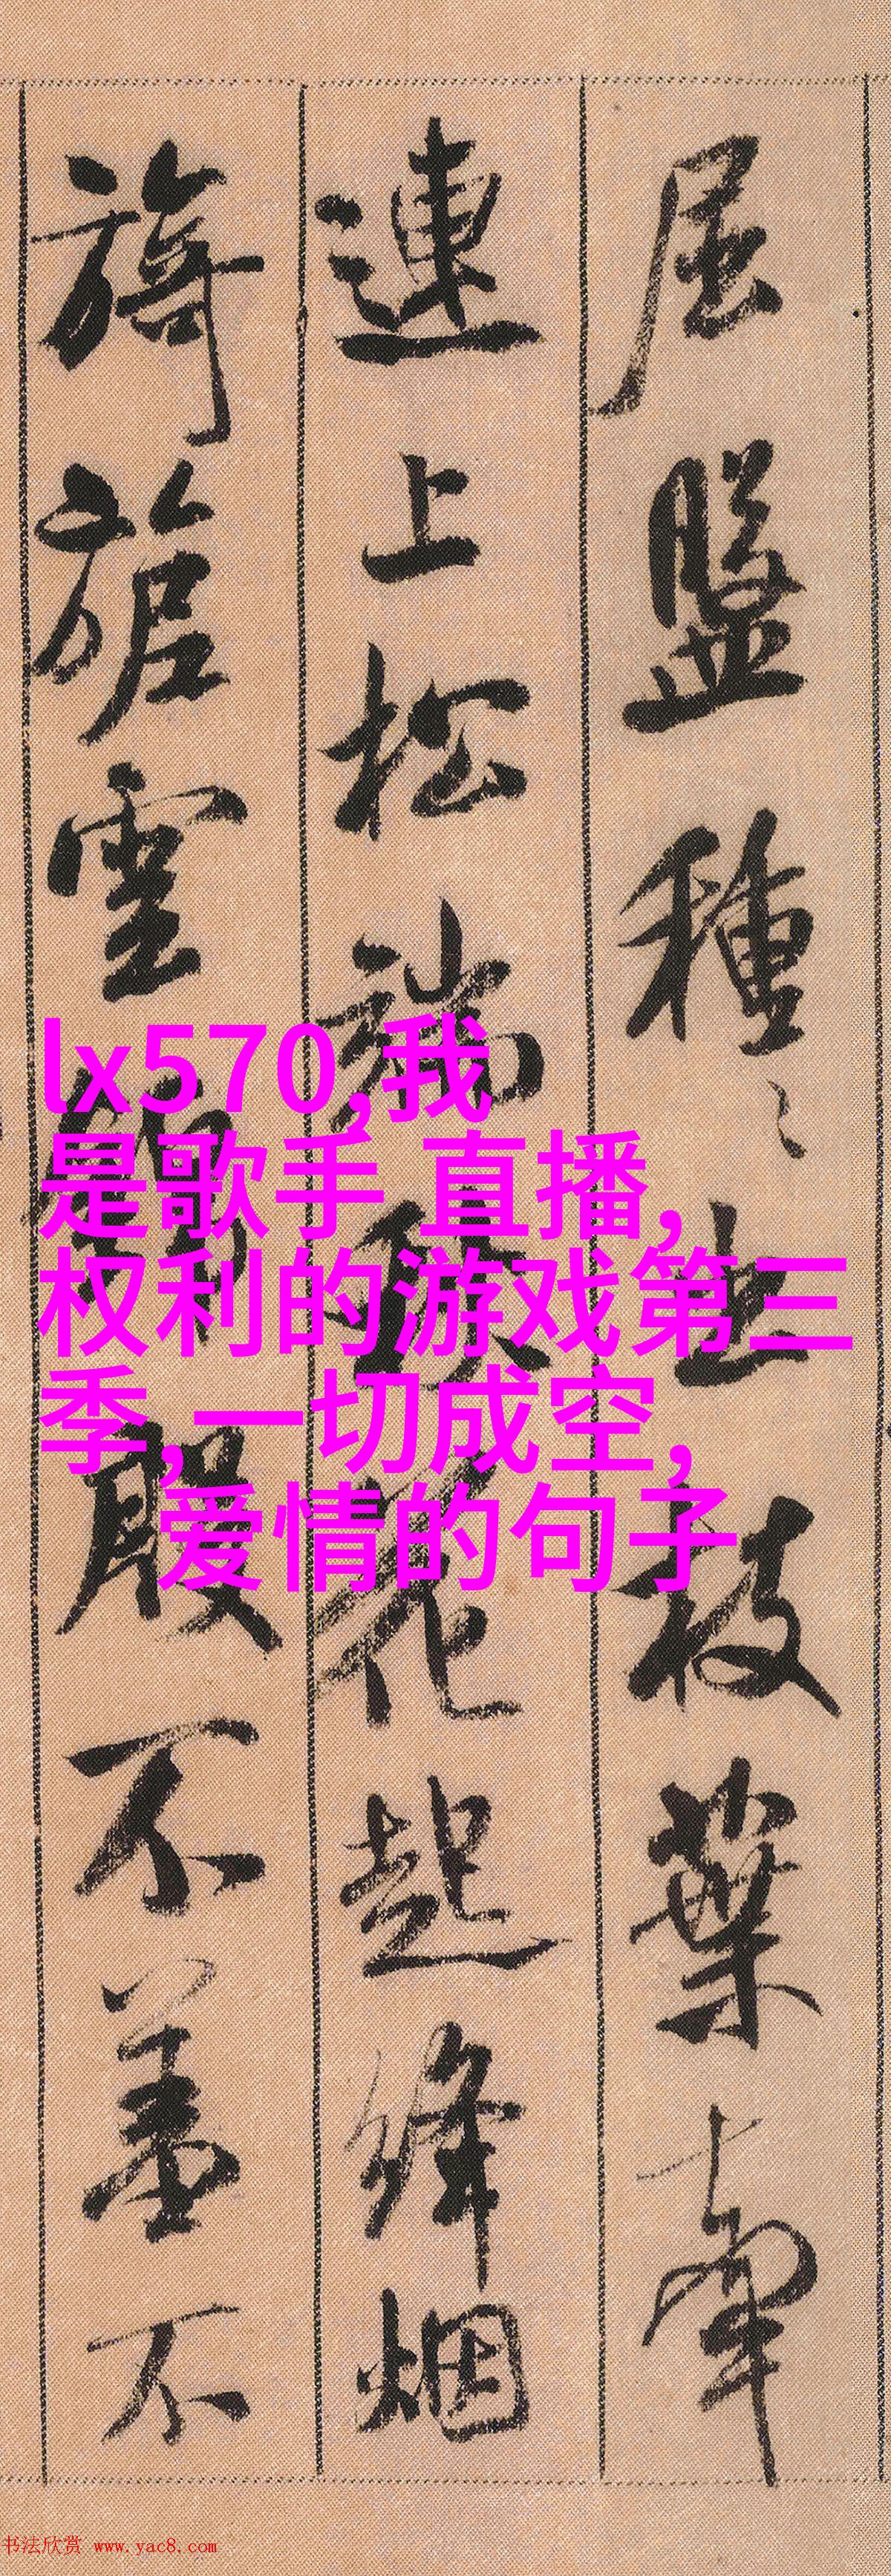 屈盤種〻出枝葉牽
連上松端秋花起絳烟
旖旎雲錦殷不羞不
lx570,我
是歌手 直播,
权利的游戏第三
季,一切成空,
爱情的句子
书法欣赏 www.yac8.com